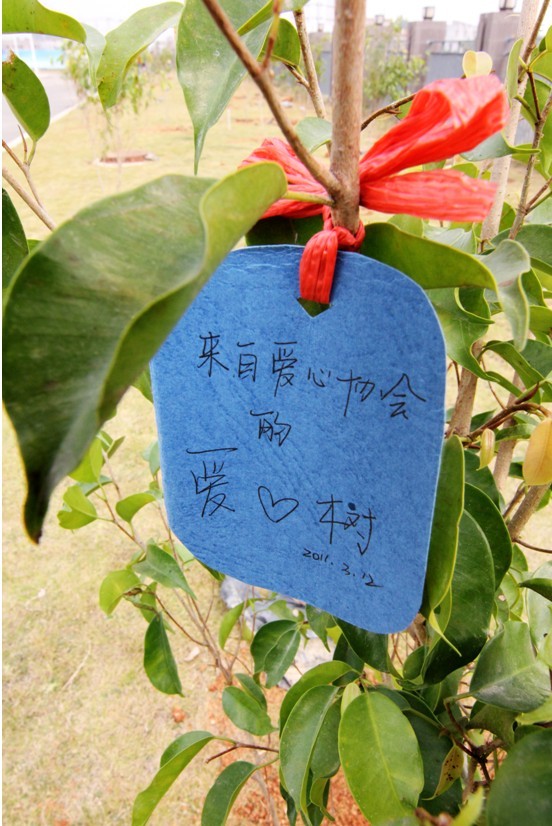 来自爱心协会
的
爱♡树
2011.3.12